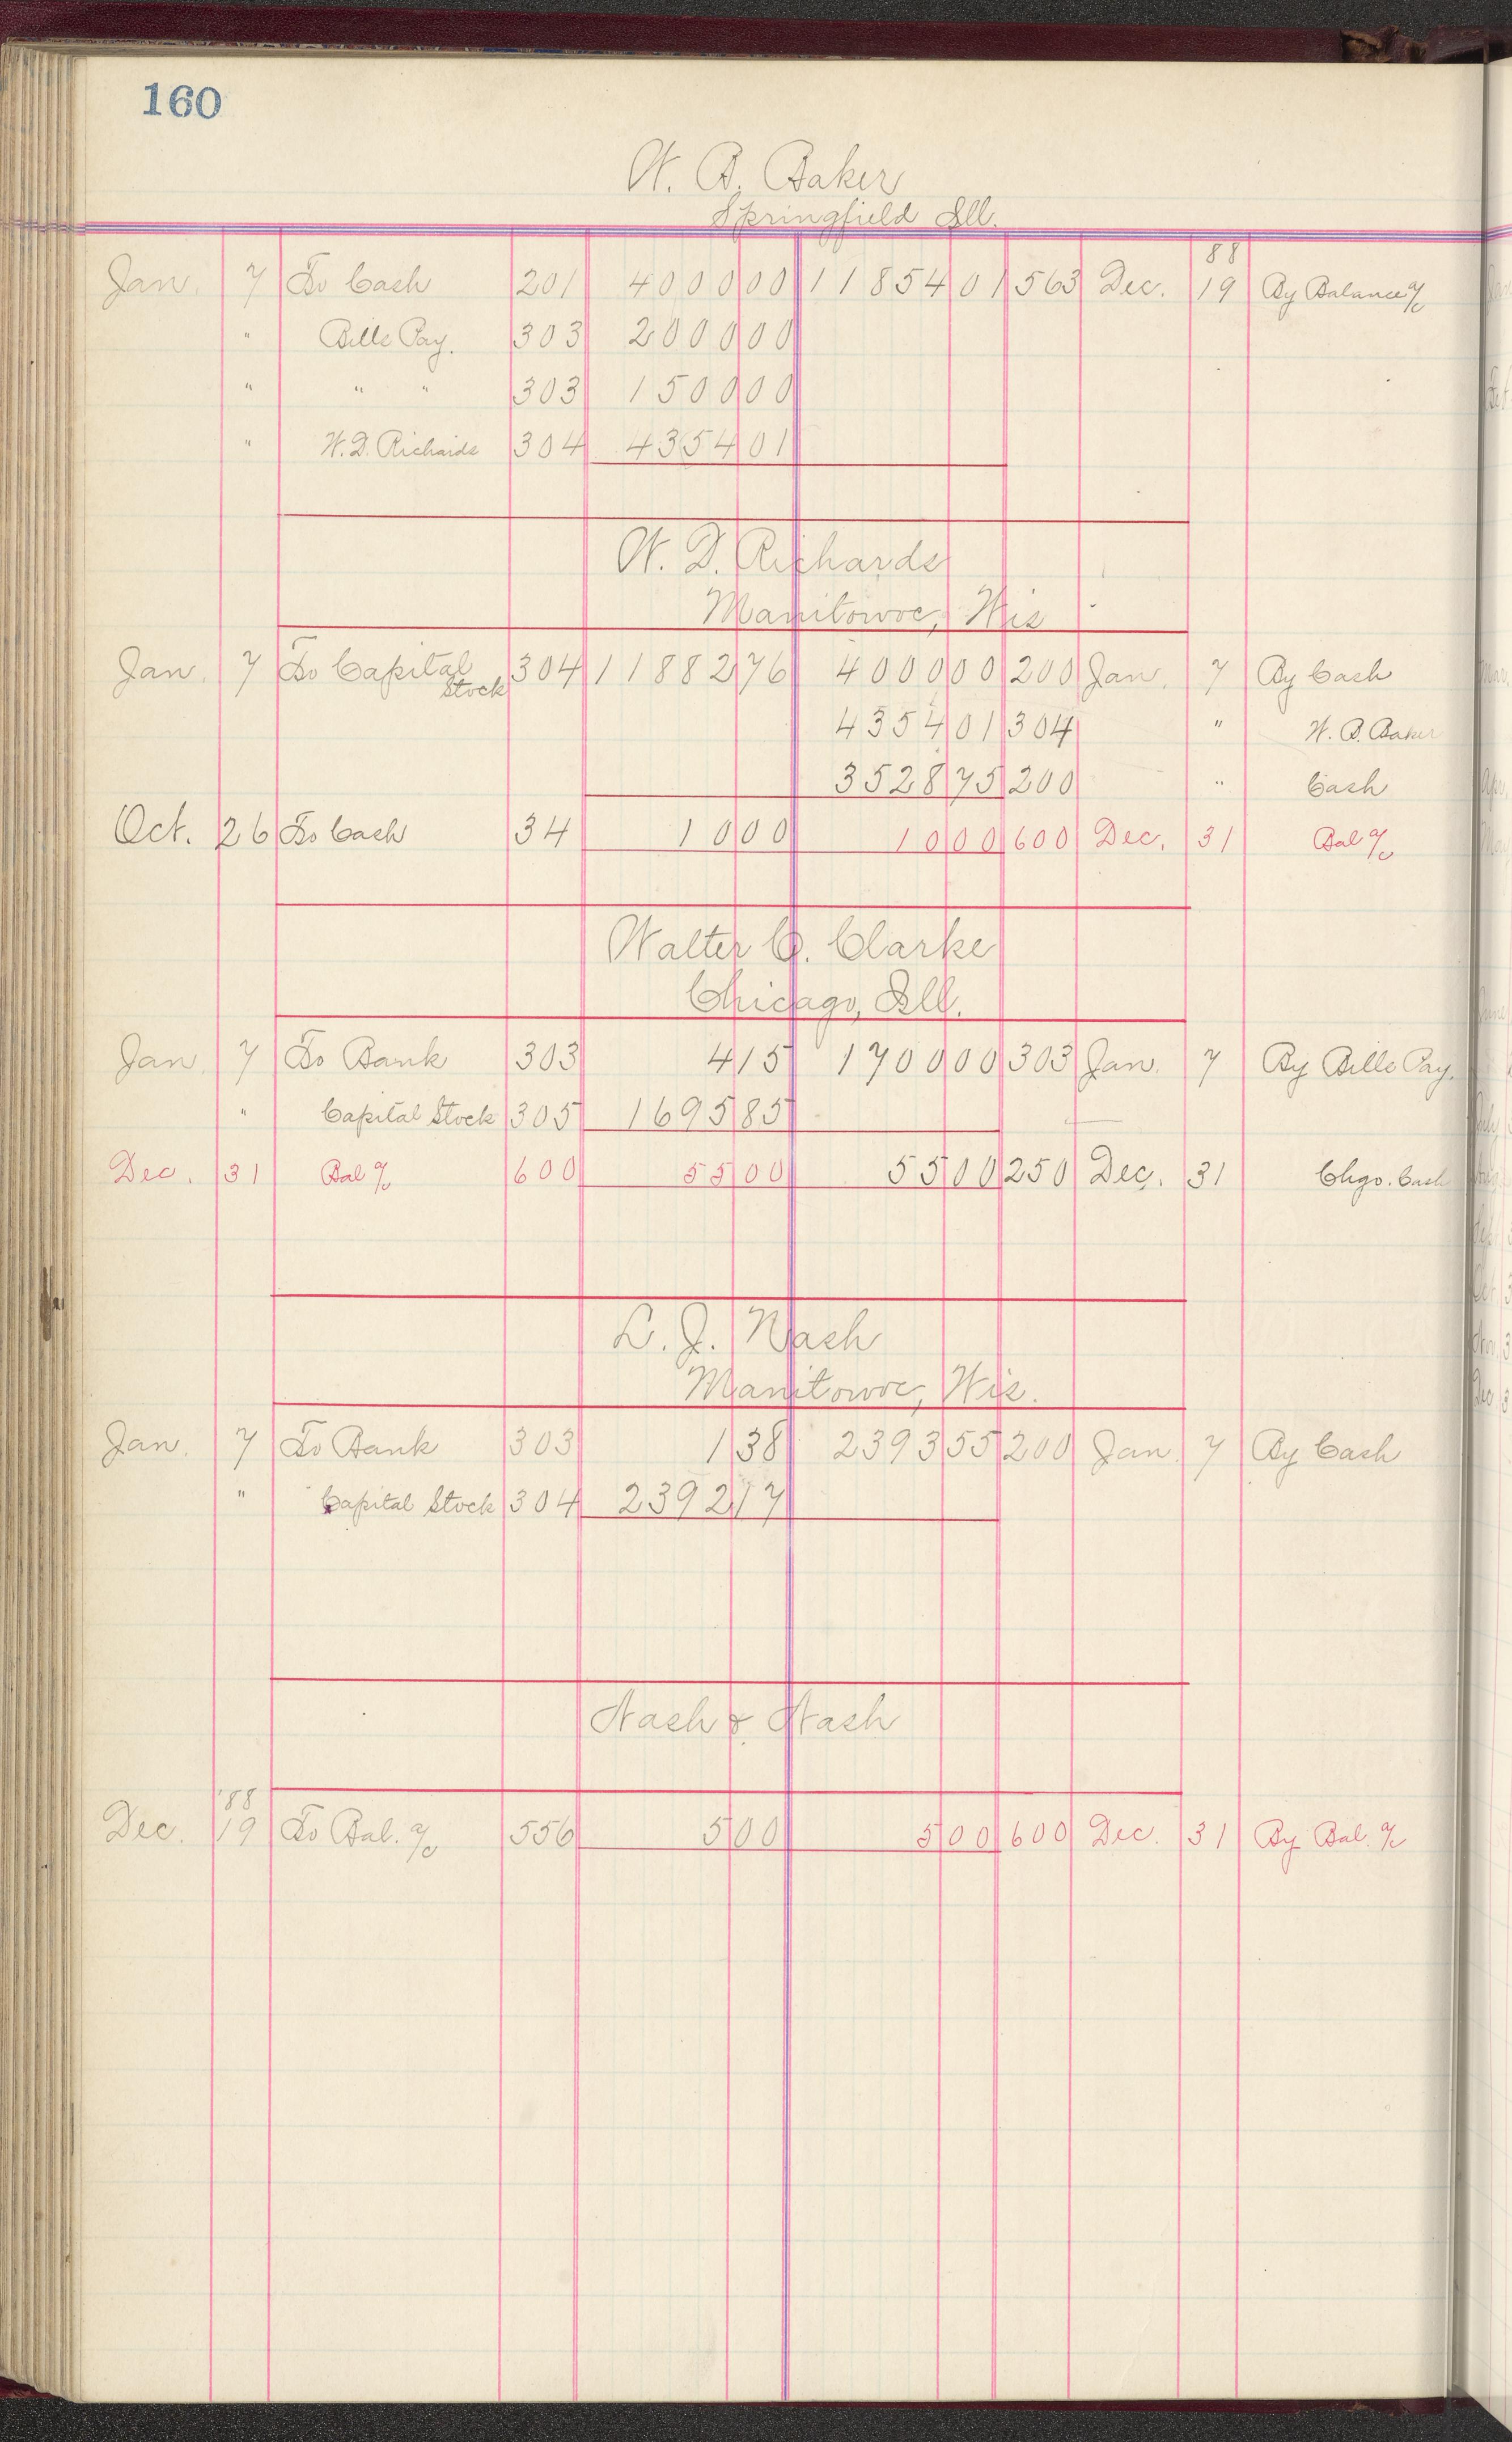 160
W. B. Baker
Springfield Ill.
88
Jan. 7 To Cash 201 4000 00 11854 01 563 Dec. 19 By Balance a/c
" Bills Pay. 303 2000 00
" " " 303 1500 00
" W. D. Richards 304 4354 01
W. D. Richards
Manitowoc, Wis
Jan. 7 To Capital Stock 304 11882 76 4000 00 200 Jan. 7 By Cash
4354 01 304 " W. B. Baker
3528 75 200 " Cash
Oct. 26 To Cash 34 10 00 10 00 600 Dec. 31 Bal a/c
Walter C. Clarke
Chicago, Ill.
Jan. 7 To Bank 303 4 15 1700 00 303 Jan. 7 By Bills Pay.
" Capital Stock 305 1695 85
Dec. 31 Bal a/c 600 55 00 55 00 250 Dec. 31 Chgo. Cash
L. J. Nash
Manitowoc, Wis.
Jan. 7 To Bank 303 1 38 2393 55 200 Jan. 7 By Cash
" Capital Stock 304 2392 17
Nash & Nash
'88
Dec. 19 To Bal. a/c 556 5 00 5 00 600 Dec. 31 By Bal. a/c